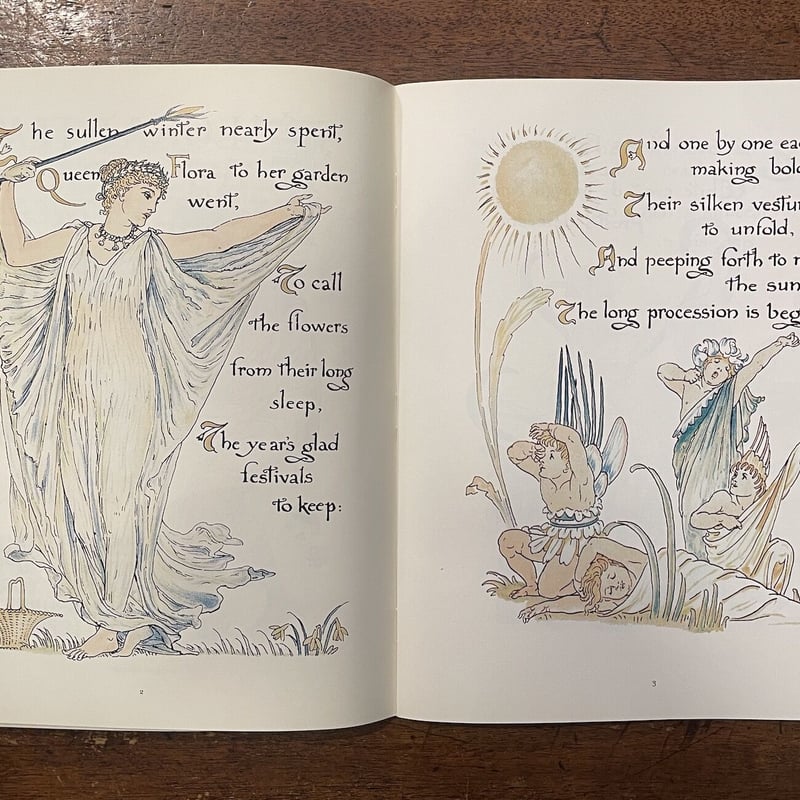 he sullen winter nearly spent,
Queen Flora to her garden
went,
To call
the flowers
from their long
sleep,
The year's glad
festivals
to keep:
2
And one by one eac
making bold
Their silken vestur
to unfold,
And peeping forth to m
the sun
The long procession is beg
3